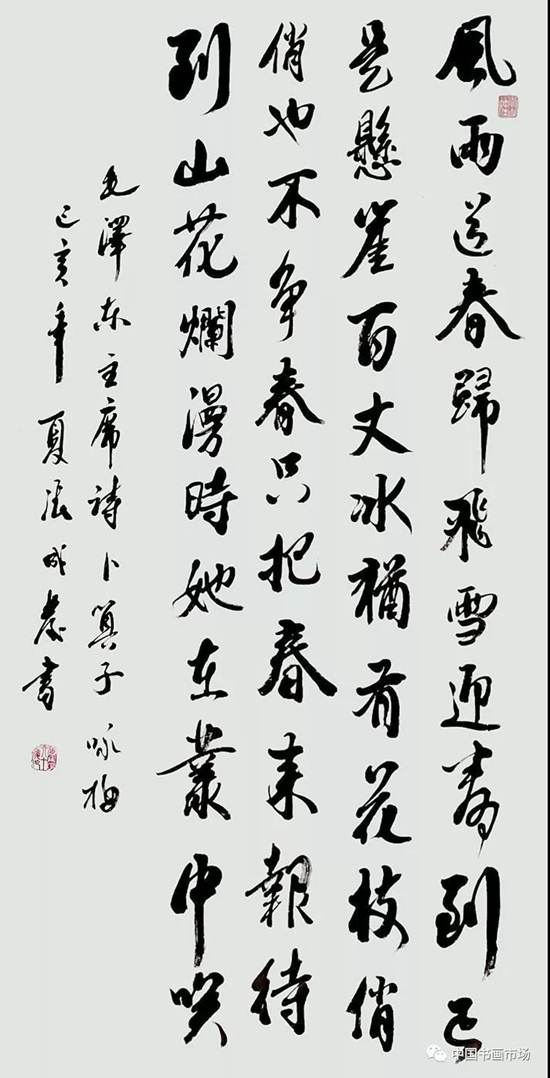 風雨送春歸飛雪迎春到已
是懸崖百丈冰猶有花枝俏
俏也不争春只把春来報待
到山花爛漫時她在叢中咲
毛澤东主席詩卜算子 咏梅
己亥年夏張成書
中国书画市场